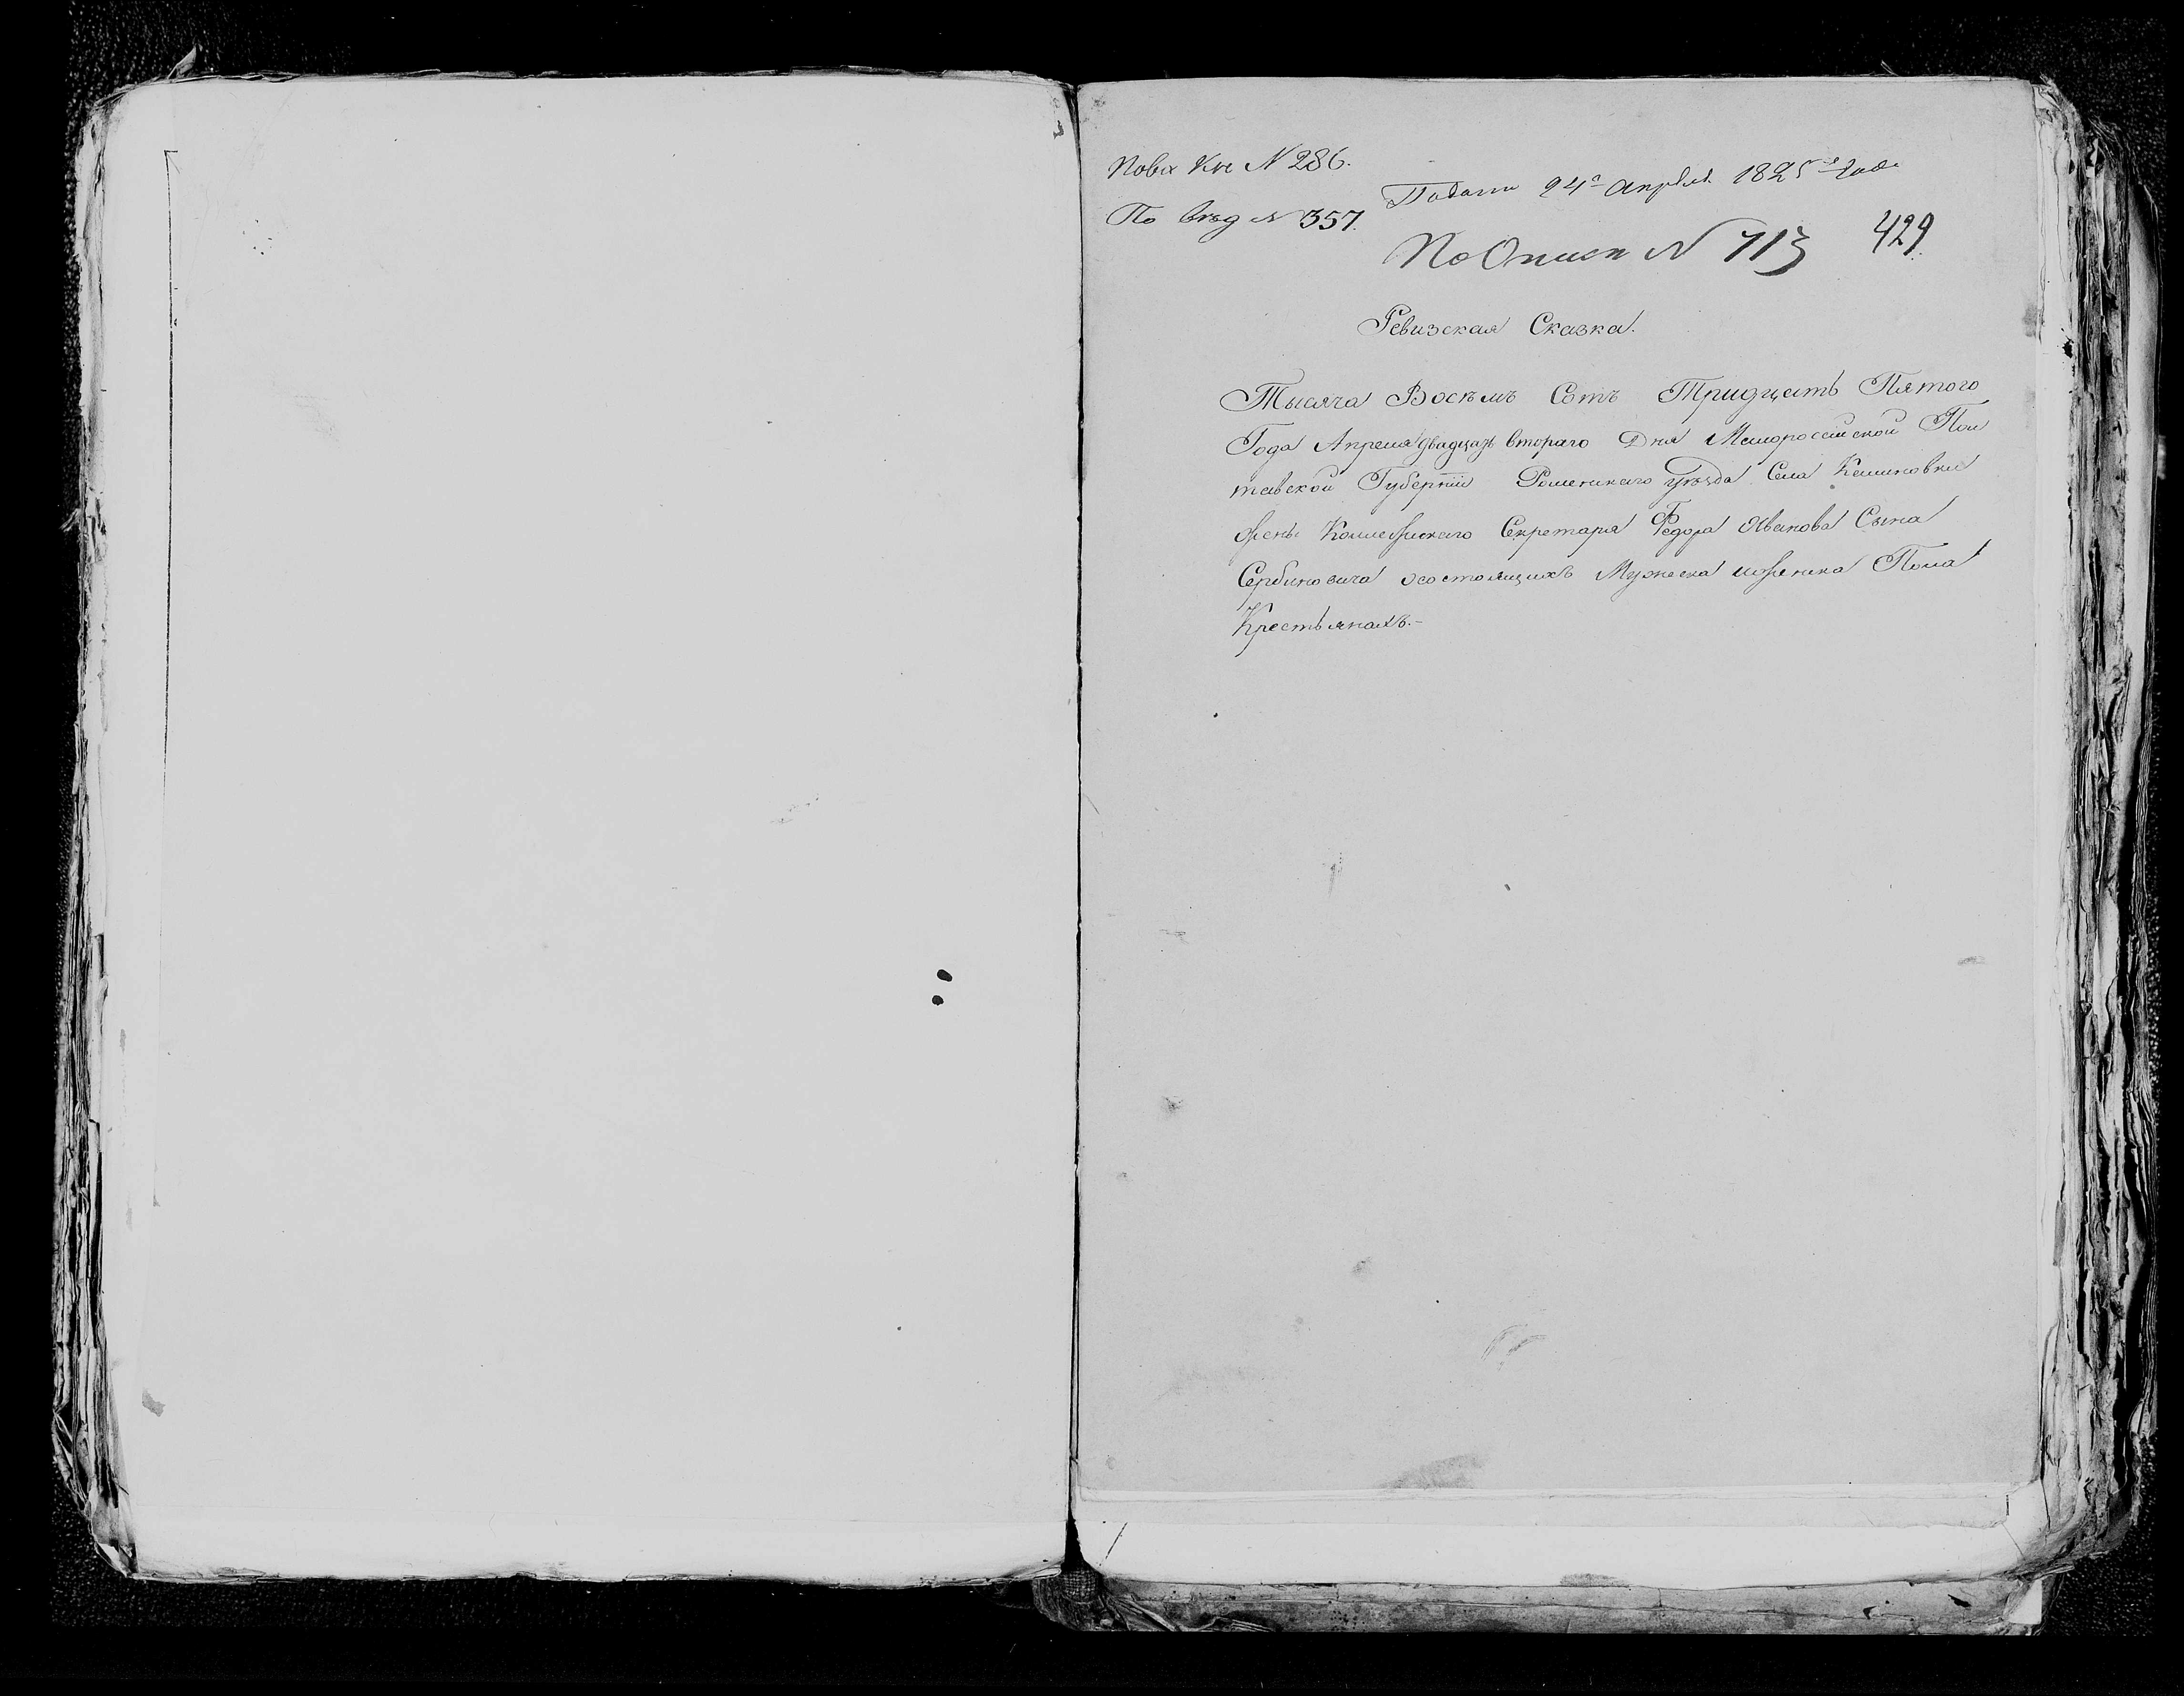 По ва Кн N 286.
По вѣд N 357.
Подана 24го апреля 1835го года
По Описи N 713
429.
Ревизская Сказка.
Тысяча Восѣмъ Сотъ Тридцать Пятого
Года Апреля двадцать втораго Дня Малороссийской Пол
тавской Губернiи Роменского уѣзда Села Калиновки
жены Коллежского Секретаря Федора Иванова Сына
Сербиновича осостоящихъ Мужеска иженска Пола
Крестьянахъ.-